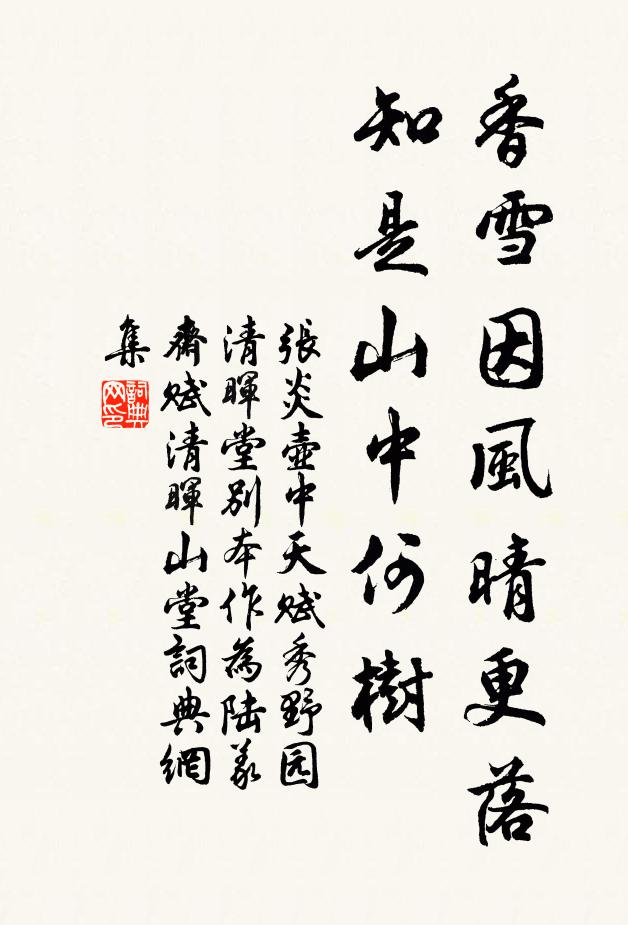 香雪因風晴更落
知是山中何樹
張炎壺中天賦秀野园
清暉堂別本作為陸義
齋賦清暉山堂詞典網
集
詞典網印